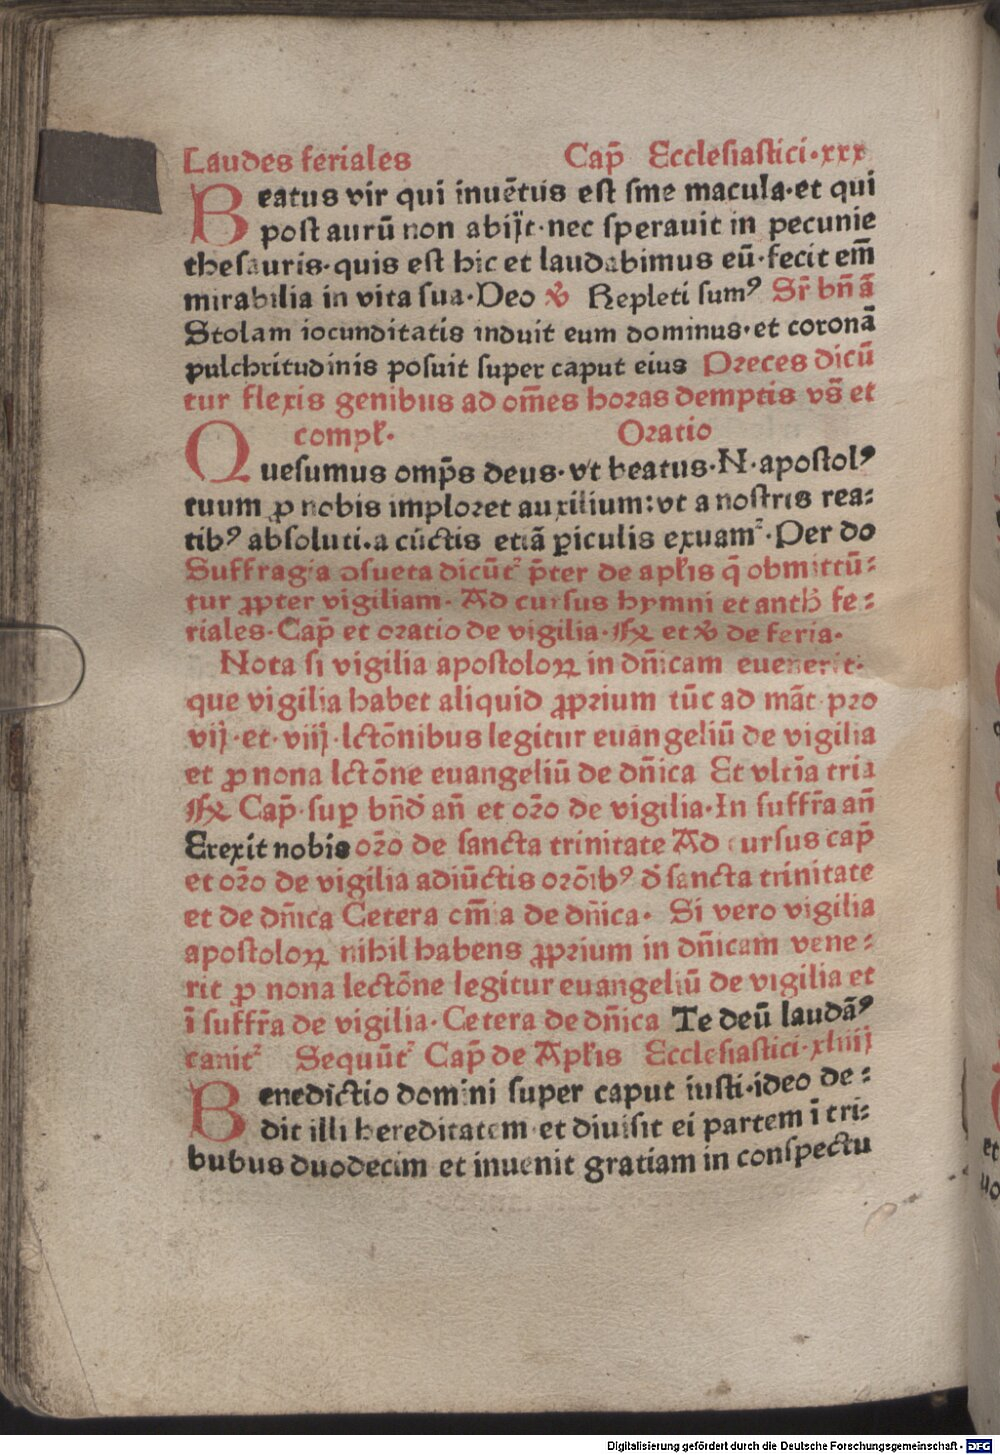 Laudes feriales Cap̄ Ecclesiastici·xxx
Beatus vir qui inuētus est sine macula·et qui
post aurū non abijt·nec sperauit in pecunie
thesauris·quis est hic et laudabimus eū·fecit em̄
mirabilia in vita sua·Deo ℣ Repleti sumꝰ Sr̄ bn̄ ā
Stolam iocunditatis induit eum dominus·et coronā
pulchritudinis posuit super caput eius Preces dicū
tur flexis genibus ad om̄es horas demptis vs̄ et
compl̄· Oratio
Quesumus omp̄s deus·vt beatus·N·apostolꝰ
tuum ꝓ nobis imploret auxilium:vt a nostris rea:
tibꝰ absoluti.a cūctis etiā ꝑiculis exuamᷣ·Per do
Suffragia ↄsueta dicūtᷣ p̄ter de apl̄is q̄ obmittū:
tur ꝓpter vigiliam· Ad cursus hymni et anth̄ fe:
riales·Cap̄ et oratio de vigilia·℟ et ℣ de feria·
Nota si vigilia apostoloꝝ in dn̄icam euenerit·
que vigilia habet aliquid ꝓprium tūc ad māt pro
vij·et·viij·lctōnibus legitur euangeliū de vigilia
et ꝓ nona lctōne euangeliū de dn̄ica Et vltīa tria
℟ Cap̄·suꝑ bn̄d̄ an̄ et orō de vigilia·In suffr̄a an̄
Erexit nobis orō de sancta trinitate Ad cursus cap̄
et orō de vigilia adiūctis orōibꝰ d̄ sancta trinitate
et de dn̄ica Cetera om̄ia de dn̄ica· Si vero vigilia
apostoloꝝ nihil habens ꝓprium in dn̄icam vene:
rit ꝓ nona lectōne legitur euangeliū de vigilia et
ī suffr̄a de vigilia·Cetera de dn̄ica Te deū laudāꝰ
canitᷣ Sequūtᷣ Cap̄ de Apl̄is Ecclesiastici·xliiij
Benedictio domini super caput iusti·ideo de:
dit illi hereditatem et diuisit ei partem ī tri:
bubus duodecim et inuenit gratiam in conspectu
Digitalisierung gefördert durch die Deutsche Forschungsgemeinschaft - DFG